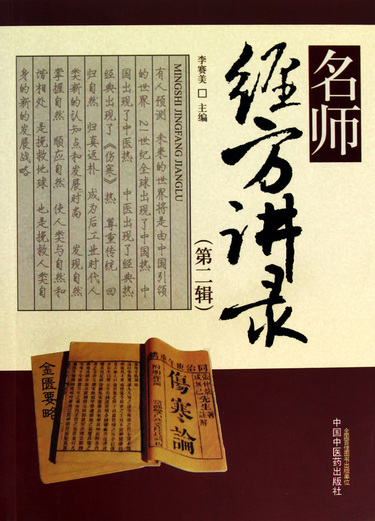 名师
经方讲录
(第二辑)
李赛美 □ 主编
MINGSHI JINGFANG JIANGLU
有人预测 未来的世界将是由中国引领
的世界 21世纪全球出现了中国热 中
国出现了中医热 中医出现了经典热
经典出现了《伤寒》热 尊重传统 回
归自然 归真返朴 成为后工业时代人
类新的认知点和发展时尚 发现自然
掌握自然 顺应自然 使人类与自然和
谐相处 是挽救地球 也是挽救人类自
身的新的发展战略
傷寒論
金匮要略
全国百佳图书出版单位
中国中医药出版社